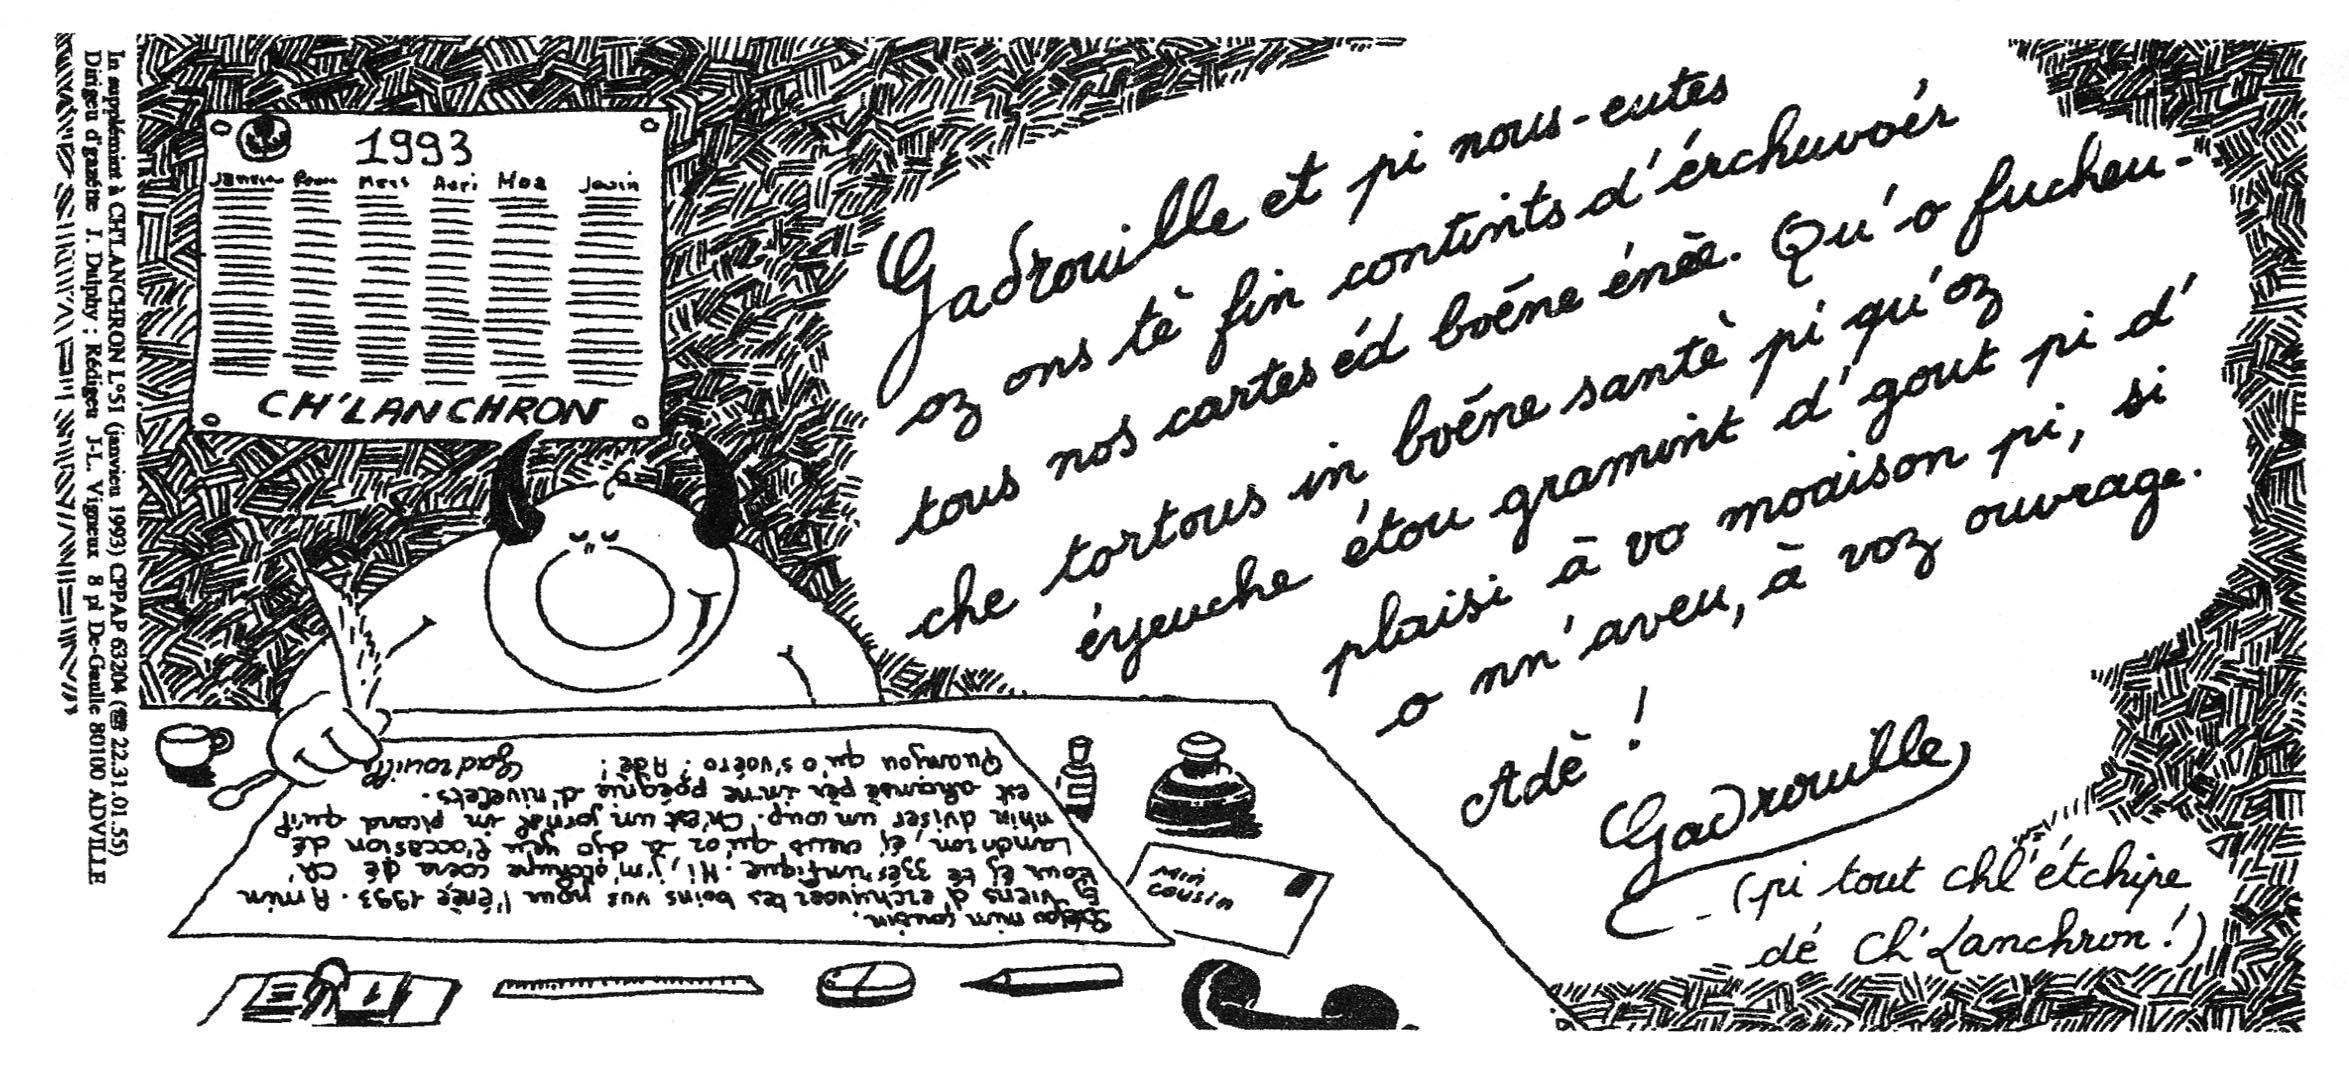 In suplémint à CH'LANCHRON L°51 (janvieu 1993) CPPAP 63204 (☎ 22.31.01.55)
Dirigeu d'gazète J. Dulphy : Rédigeu J-L. Vigneux 8 pl De-Gaulle 80100 ADVILLE
1993
Janvieu Mars Avri Moa Jouin
CH'LANCHRON
Gadrouille et pi nous-eutes
oz ons tè fin contints d'érchuvoér
tous nos cartes éd boéne énèe. Qu'o fucheu-
che tortous in boéne santè pi qu'oz
érjeuche étou gramint d'gout pi d'
plaisi à vo moaison pi, si
o nn'aveu, à voz ouvrage.
Adè !
Gadrouille
(pi tout chl'étchipe
dé Ch'Lanchron !)
min cousin.
Ej viens d'érchuvoér tes boins vus pour l'énèe 1993. A min
tour ej té
Lanchron, ej qu'oz à djo yeu l'occasion dé
nhin dviser un coup. Ch'est un jornal in picard qu'il
est ahansè pèr inne pognie d'nivelets.
Quanjou qu'o s'voéro ? Adè ! Gadrouille
Min
cousin